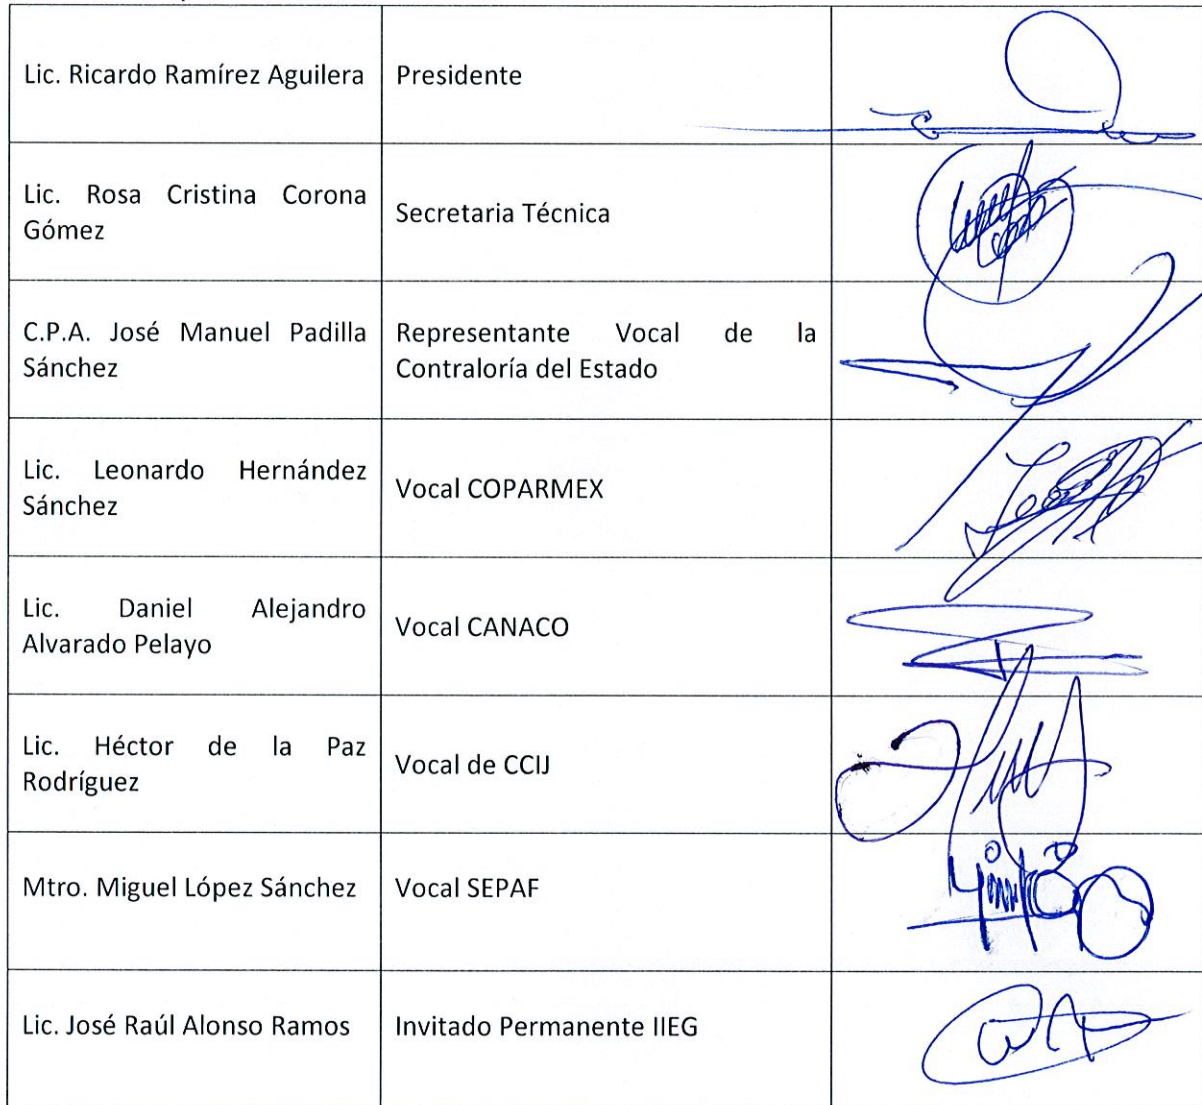 Lic. Ricardo Ramírez Aguilera
Presidente
Lic. Rosa Cristina Corona
Gómez
Secretaria Técnica
C.P.A. José Manuel Padilla
Sánchez
Representante Vocal de la
Contraloría del Estado
Lic. Leonardo Hernández
Sánchez
Vocal COPARMEX
Lic. Daniel Alejandro
Alvarado Pelayo
Vocal CANACO
Lic. Héctor de la Paz
Rodríguez
Vocal de CCIJ
Mtro. Miguel López Sánchez
Vocal SEPAF
Lic. José Raúl Alonso Ramos
Invitado Permanente IIEG